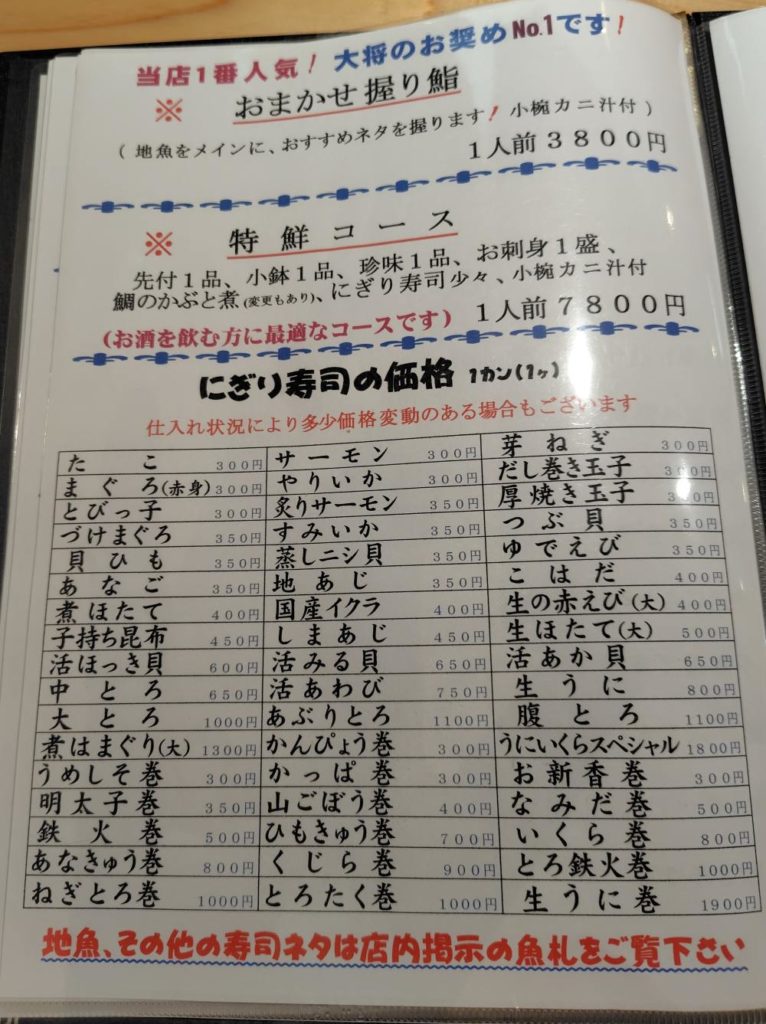 当店1番人気! 大将のお奨めNo.1です!
※ おまかせ握り鮨
( 地魚をメインに、おすすめネタを握ります! 小椀カニ汁付 )
1人前 3800円
※ 特鮮コース
先付1品、小鉢1品、珍味1品、お刺身1盛、
鯛のかぶと煮(変更もあり)、にぎり寿司少々、小椀カニ汁付
(お酒を飲む方に最適なコースです) 1人前 7800円
にぎり寿司の価格 1カン(1ヶ)
仕入れ状況により多少価格変動のある場合もございます
たこ 300円 サーモン 300円 芽ねぎ 300円
まぐろ(赤身) 300円 やりいか 300円 だし巻き玉子 300円
とびっ子 300円 炙りサーモン 350円 厚焼き玉子 300円
づけまぐろ 350円 すみいか 350円 つぶ貝 350円
貝ひも 350円 蒸しニシ貝 350円 ゆでえび 350円
あなご 350円 地あじ 350円 こはだ 400円
煮ほたて 400円 国産イクラ 400円 生の赤えび(大) 400円
子持ち昆布 450円 しまあじ 450円 生ほたて(大) 500円
活ほっき貝 600円 活みる貝 650円 活あか貝 650円
中とろ 650円 活あわび 750円 生うに 800円
大とろ 1000円 あぶりとろ 1100円 腹とろ 1100円
煮はまぐり(大) 1300円 かんぴょう巻 300円 うにいくらスペシャル 1800円
うめしそ巻 300円 かっぱ巻 300円 お新香巻 300円
明太子巻 350円 山ごぼう巻 400円 なみだ巻 500円
鉄火巻 500円 ひもきゅう巻 700円 いくら巻 800円
あなきゅう巻 800円 くじら巻 900円 とろ鉄火巻 1000円
ねぎとろ巻 1000円 とろたく巻 1000円 生うに巻 1900円
地魚、その他の寿司ネタは店内掲示の魚札をご覧下さい